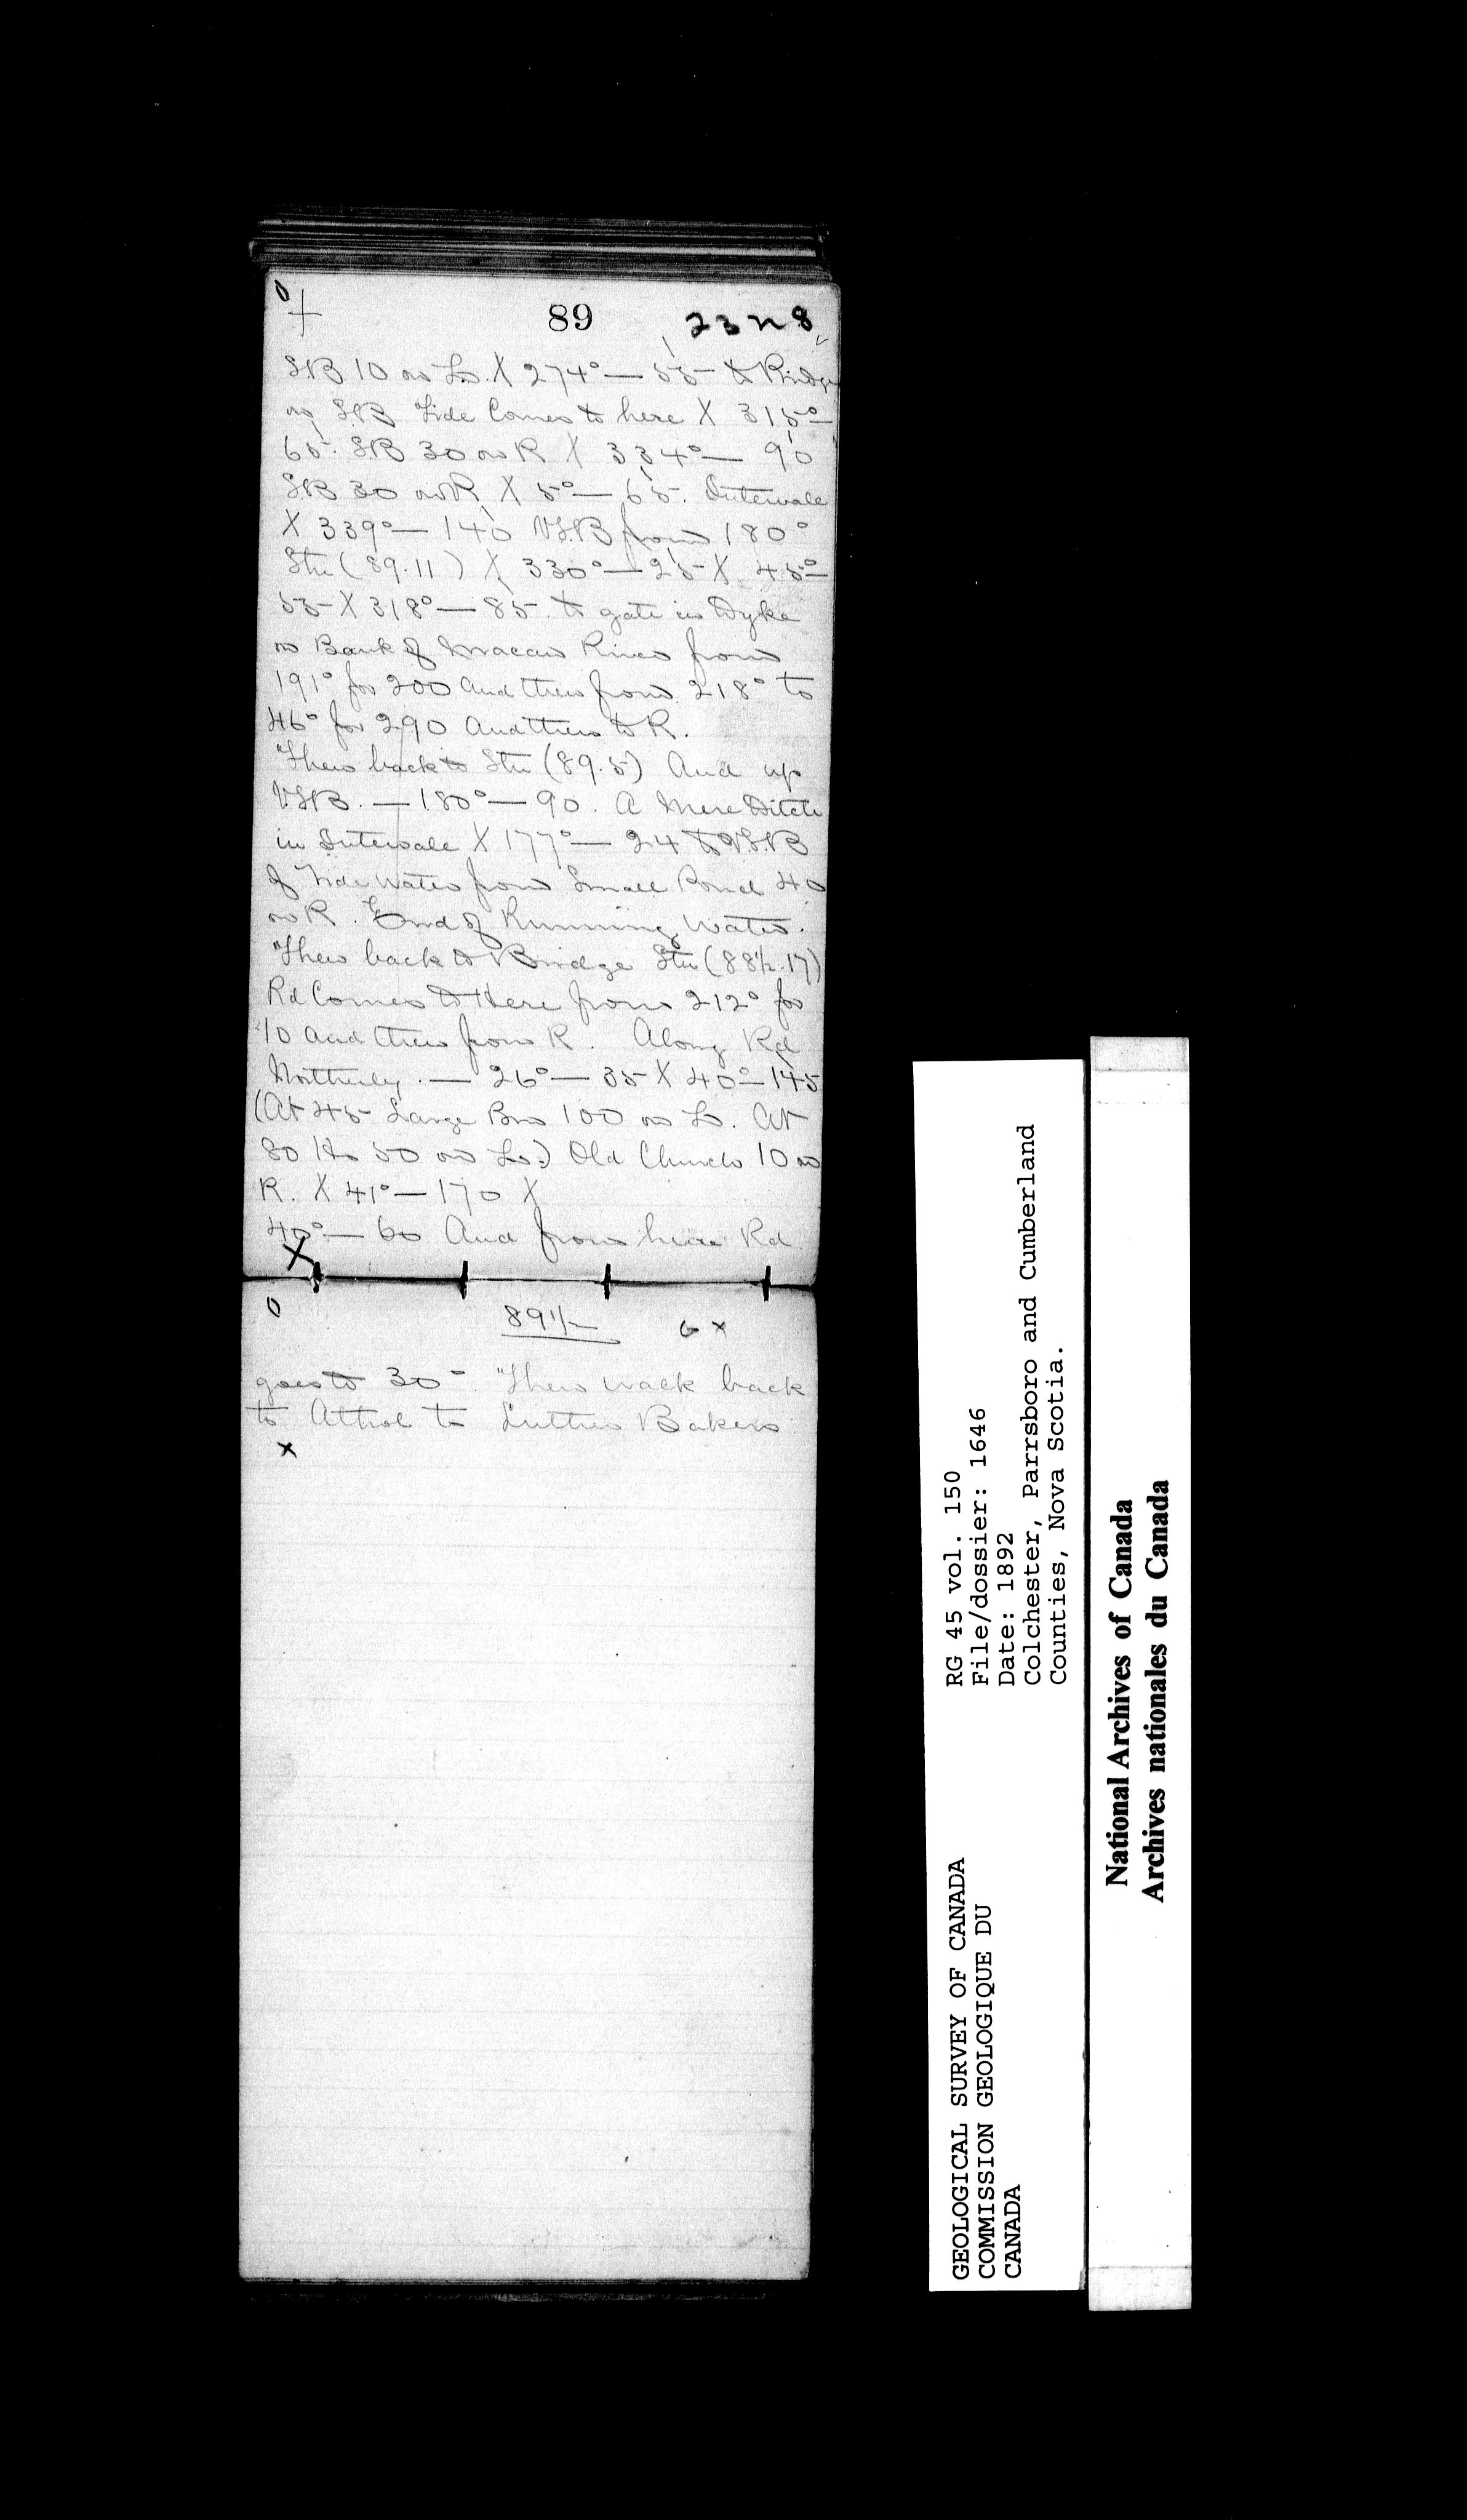 89
SB 10 on L. X 274° — 55 to Bridge
on SB Tide Comes to here X 315° —
65. SB 30 on R X 334° — 90
SB 30 on R X 5° — 65. Intervale
X 339° — 140 VSB from 180°
Stn (89.11) X 330° — 25 X 45° —
55 X 318° — 85. to gate in Dyke
on Bank of Maccan River from
191° for 200 and then from 218° to
46° for 290 And then to R.
Then back to Stn (89.5) And up
VSB. — 180° — 90. A Mere Ditch
in Intervale X 177° — 24 to VSB
of Tide Water from Small Pond 40
on R. End of Running Water.
Then back to Bridge Stn (88½.17)
Rd Comes to Here from 212° for
10 and then from R. Along Rd
Northerly. — 26° — 35 X 40° — 145
(At 45 Large Bn 100 on L. At
80 Ho 50 on L.) Old Church 10 on
R. X 41° — 170 X
40° — 60 And from here Rd
X
89½
goes to 30°. Then walk back
to Athol to Luther Bakers
x
RG 45 vol. 150
File/dossier: 1646
Date: 1892
Colchester, Parrsboro and Cumberland
Counties, Nova Scotia.
GEOLOGICAL SURVEY OF CANADA
COMMISSION GEOLOGIQUE DU
CANADA
National Archives of Canada
Archives nationales du Canada